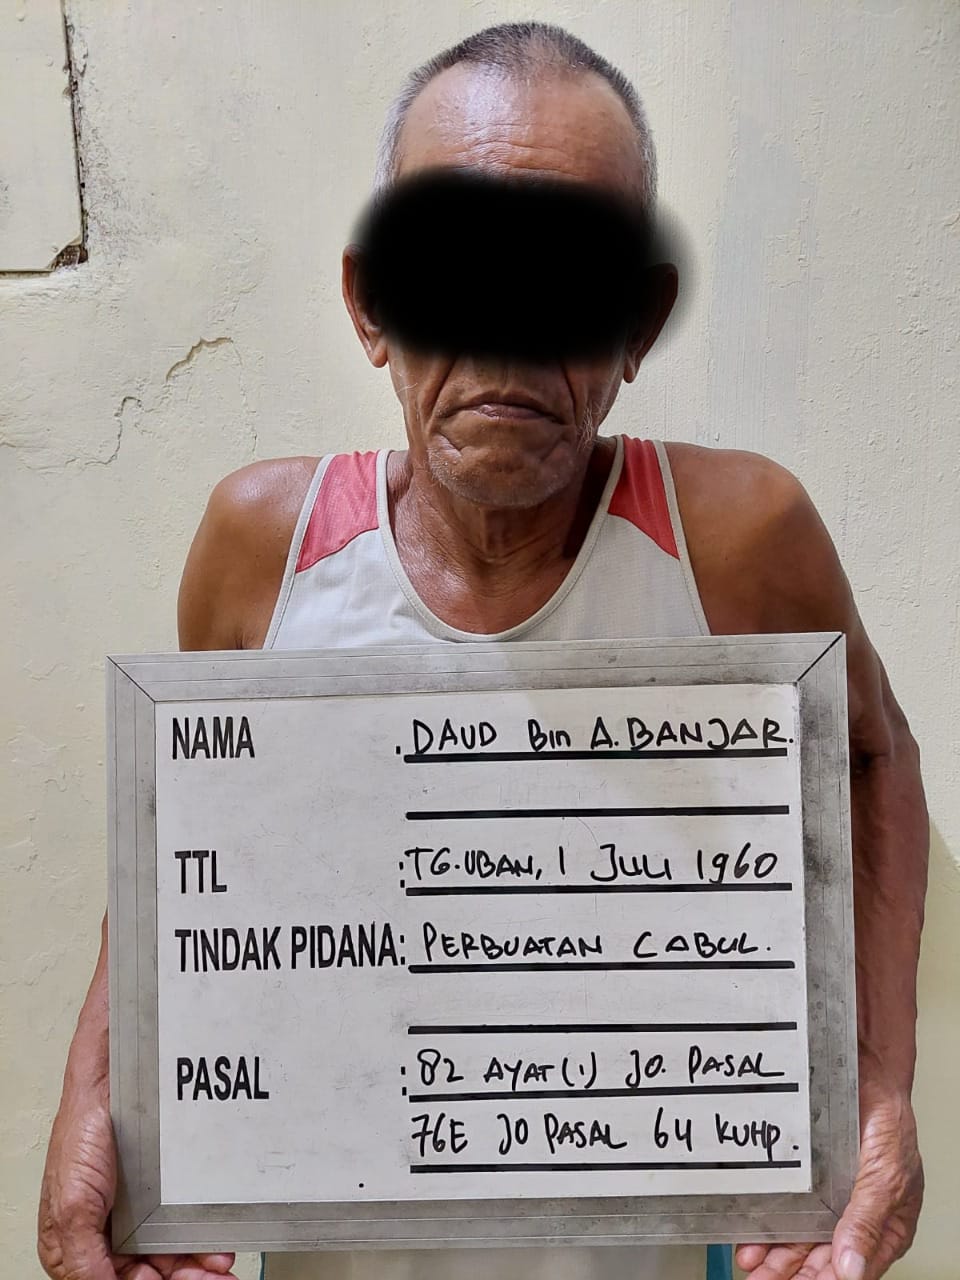 NAMA : DAUD Bin A. BANJAR.
TTL : TG.UBAN, 1 JULI 1960
TINDAK PIDANA: PERBUATAN CABUL.
PASAL : 82 AYAT (1) JO. PASAL
76E JO PASAL 64 KUHP.